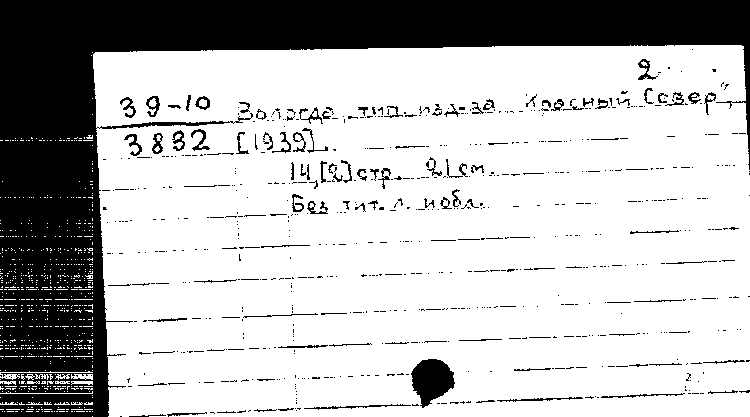 2
39-10 Вологда, тип. изд-ва "Красный Север",
3832 [1939].
14,[2] стр. 21 см.
Без тит. л. и обл.